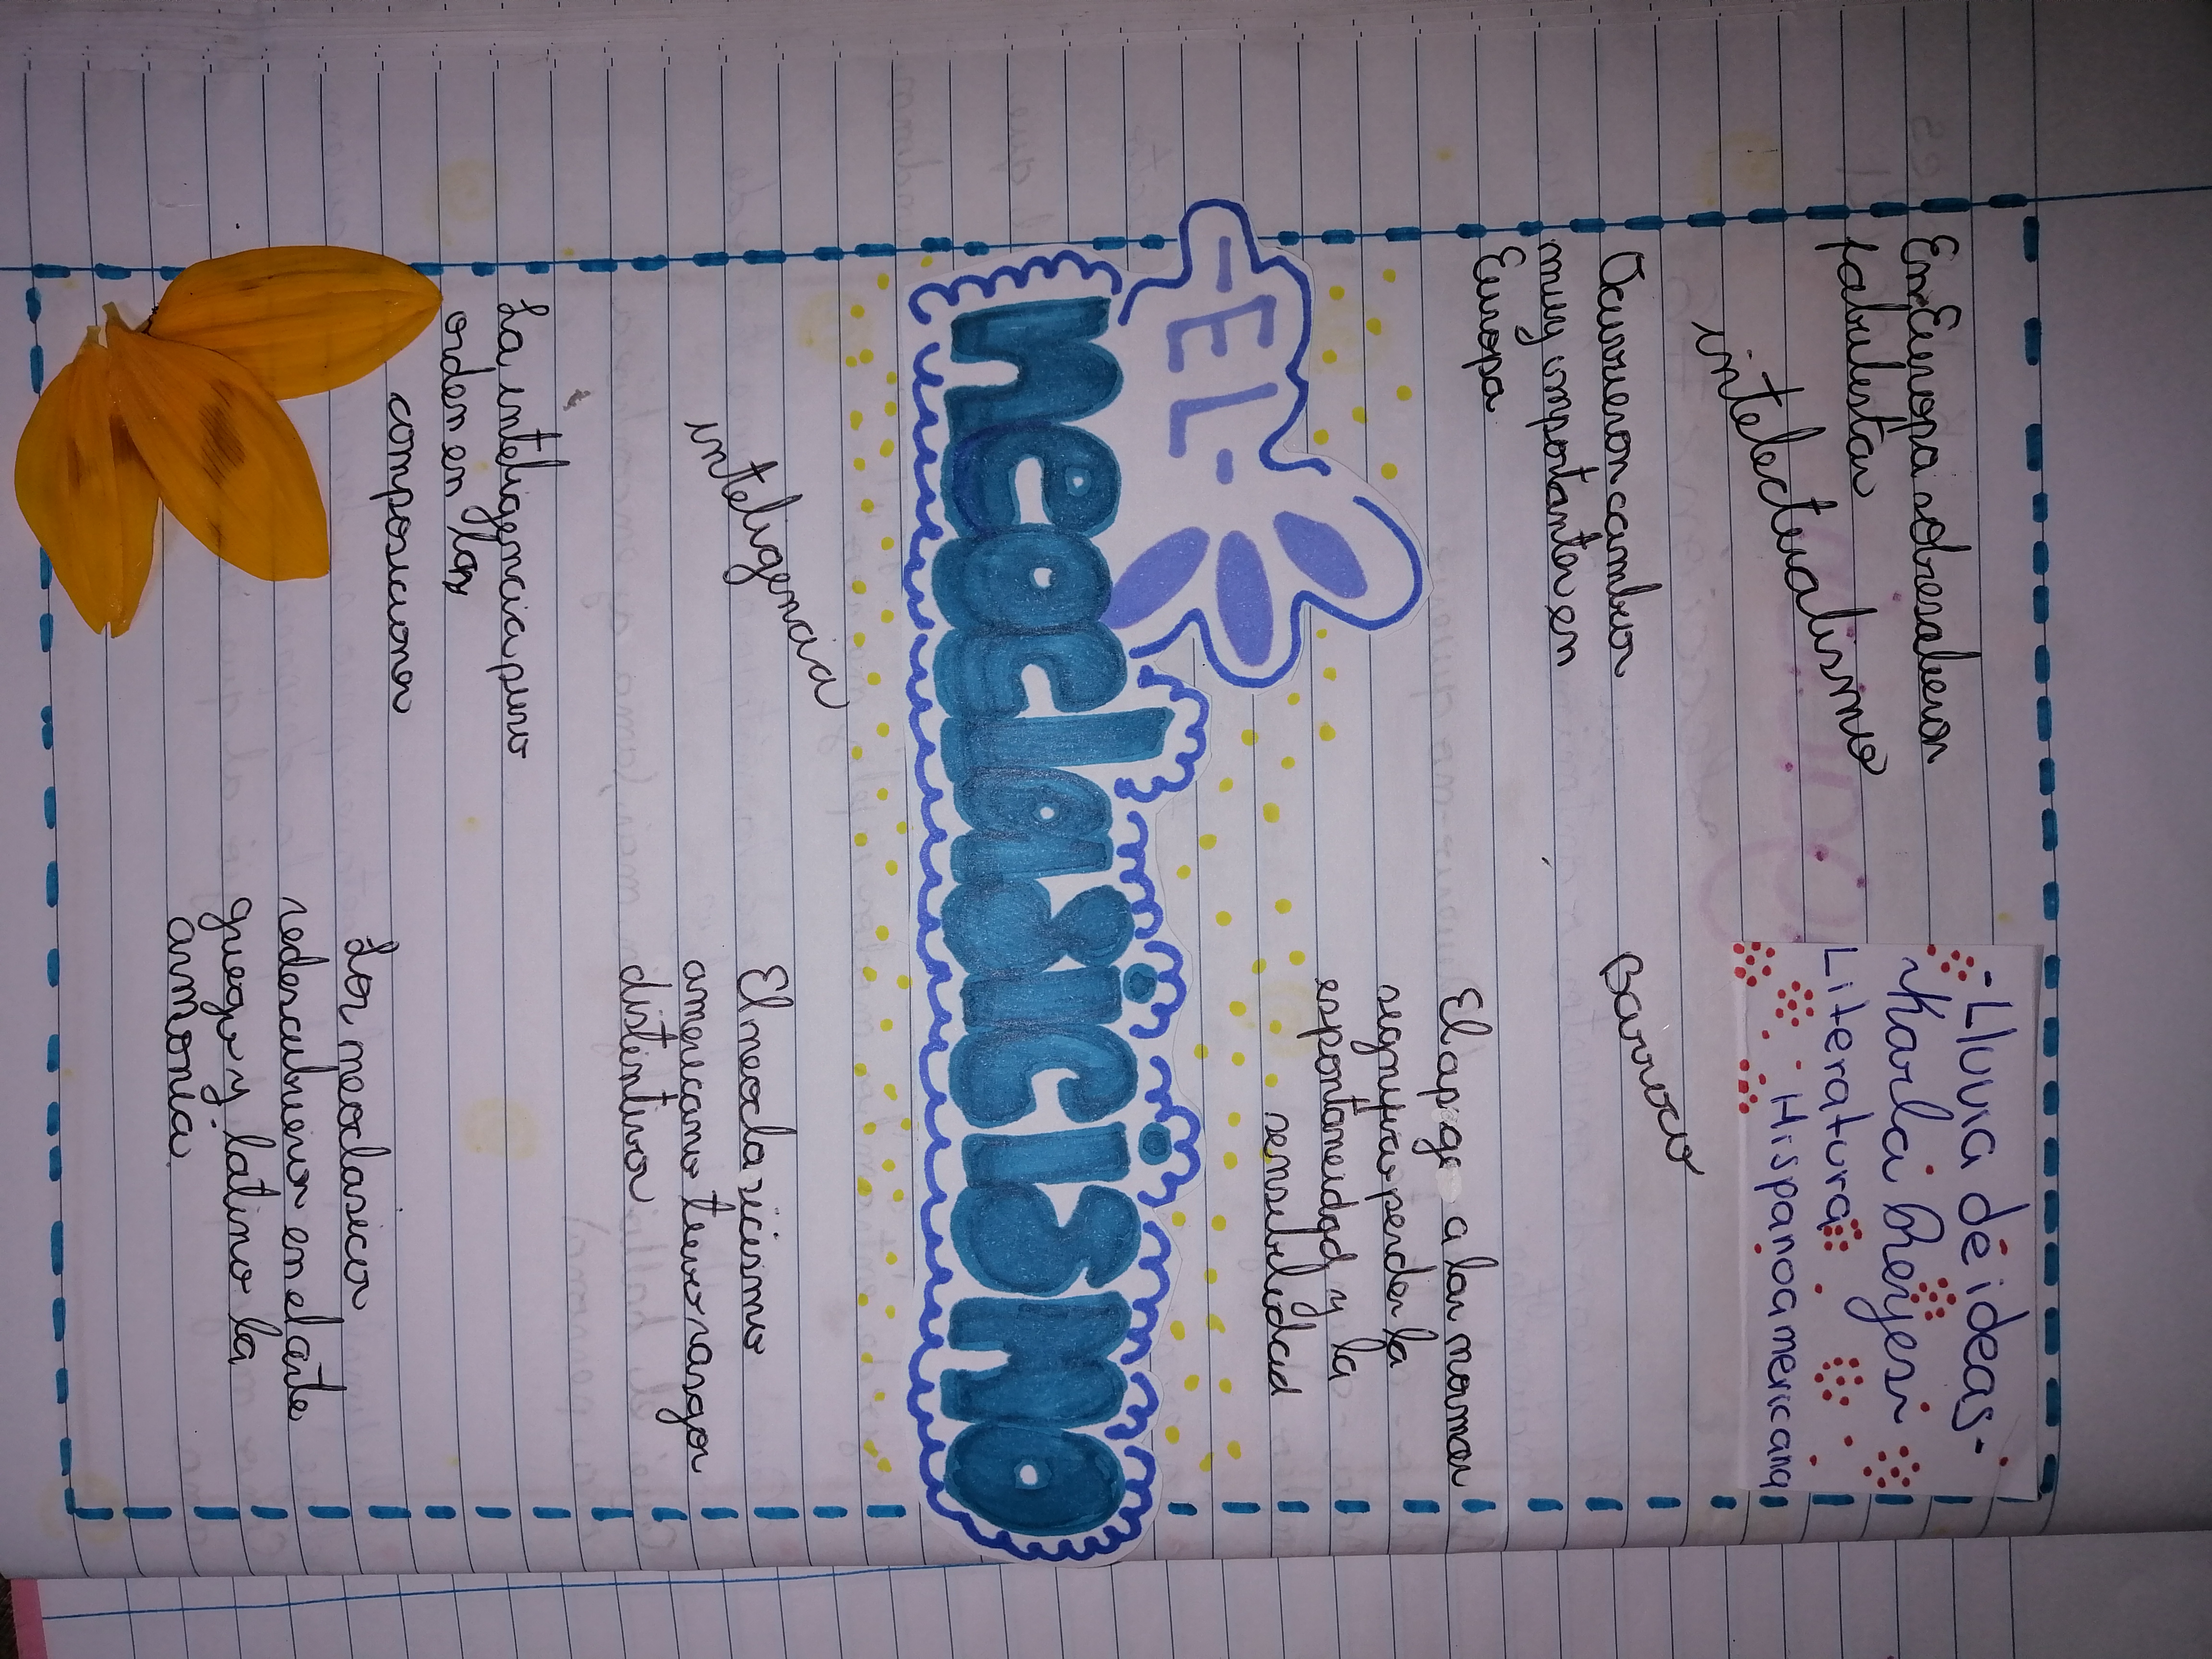 -Lluvia de ideas-
Karla Reyes
Literatura
Hispanoamericana
En Europa sobresalieron
fabulistas
intelectualismo
Ocurrieron cambios
muy importantes en
Europa
Barroco
El apego a las normas
segnifico perder la
espontaneidad y la
sensibilidad
-EL-
neoclasicismo
inteligencia
El neoclasicismo
americano tuvo rasgos
distintivos
La inteligencia puso
orden en las
composiciones
Los neoclasicos
redescubrieron en el arte
griego y latino la
armonía.